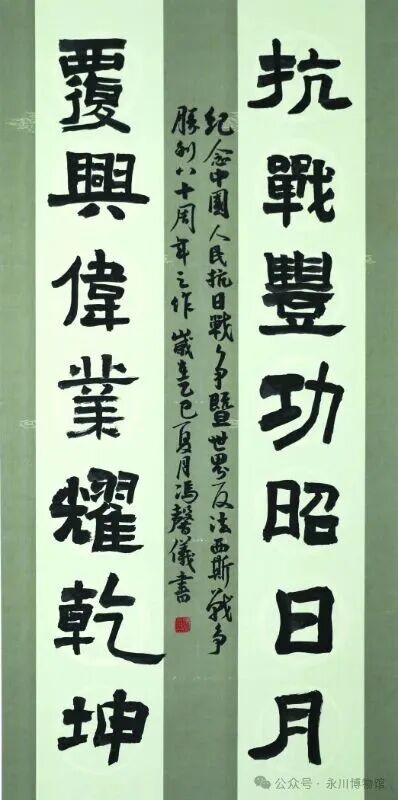 抗戰豐功昭日月
紀念中國人民抗日戰爭暨世界反法西斯戰爭
勝利八十周年之作 歲在乙巳夏月馮馨儀書
覆興偉業耀乾坤
公众号 · 永川博物馆